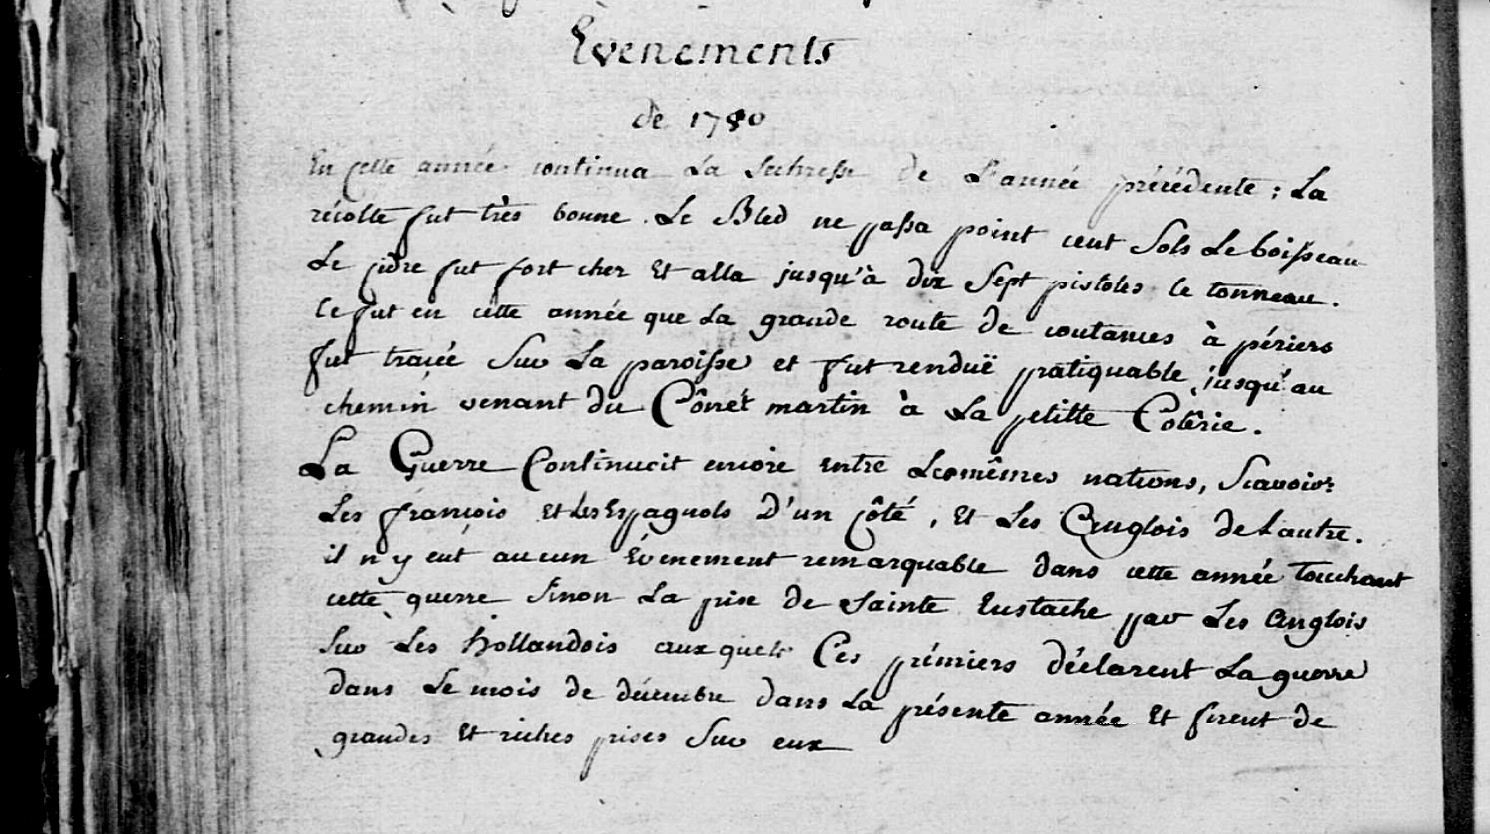 Evenements
de 1780
En cette année continua La secheresse de L'année précédente ; La
récolte fut très bonne. Le Bled ne passa point cent Sols Le boisseau
Le cidre fut fort cher Et alla jusqu'à dix Sept pistoles le tonneau.
Ce fut en cette année que La grande route de coutances à périers
fut tracée Sur La paroisse et fut renduë pratiquable jusqu'au
chemin venant du martin à La petitte Cotêrie.
La Guerre Continucit encore entre Les mêmes nations, Scavoir
Les francois Et Les Espagnols D'un côté, Et Les Anglois de Lautre.
il n'y eut aucun Évenement remarquable dans cette année touchant
cette guerre Sinon La prise de Sainte Eustache par Les Anglois
Sur Les hollandois auxquels Ces prémiers déclarent La guerre
dans Le mois de décembre dans La présente année Et firent de
grandes Et riches prises Sur eux